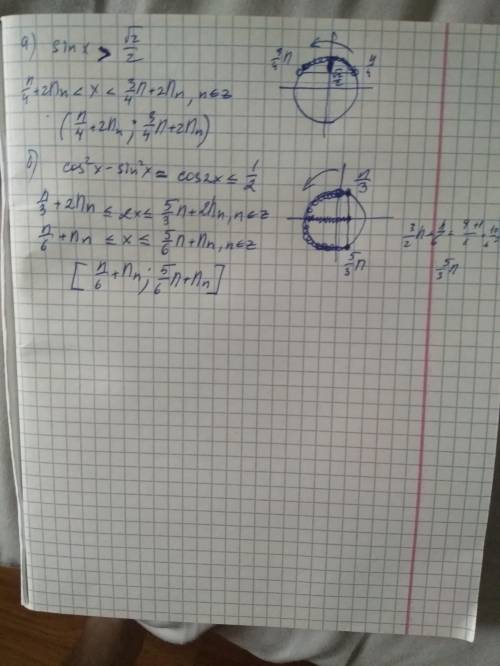 а) sin x > √2/2
π/4 + 2πn < x < 3/4 π + 2πn, n∈z
(π/4 + 2πn ; 3/4 π + 2πn)
3/4 π
π/4
√2/2
б) cos²x - sin²x = cos2x ≤ 1/2
π/3 + 2πn ≤ 2x ≤ 5/3 π + 2πn, n∈z
π/6 + πn ≤ x ≤ 5/6 π + πn, n∈z
[π/6 + πn ; 5/6 π + πn]
π/3
5/3 π
3/2 π
5/3 π